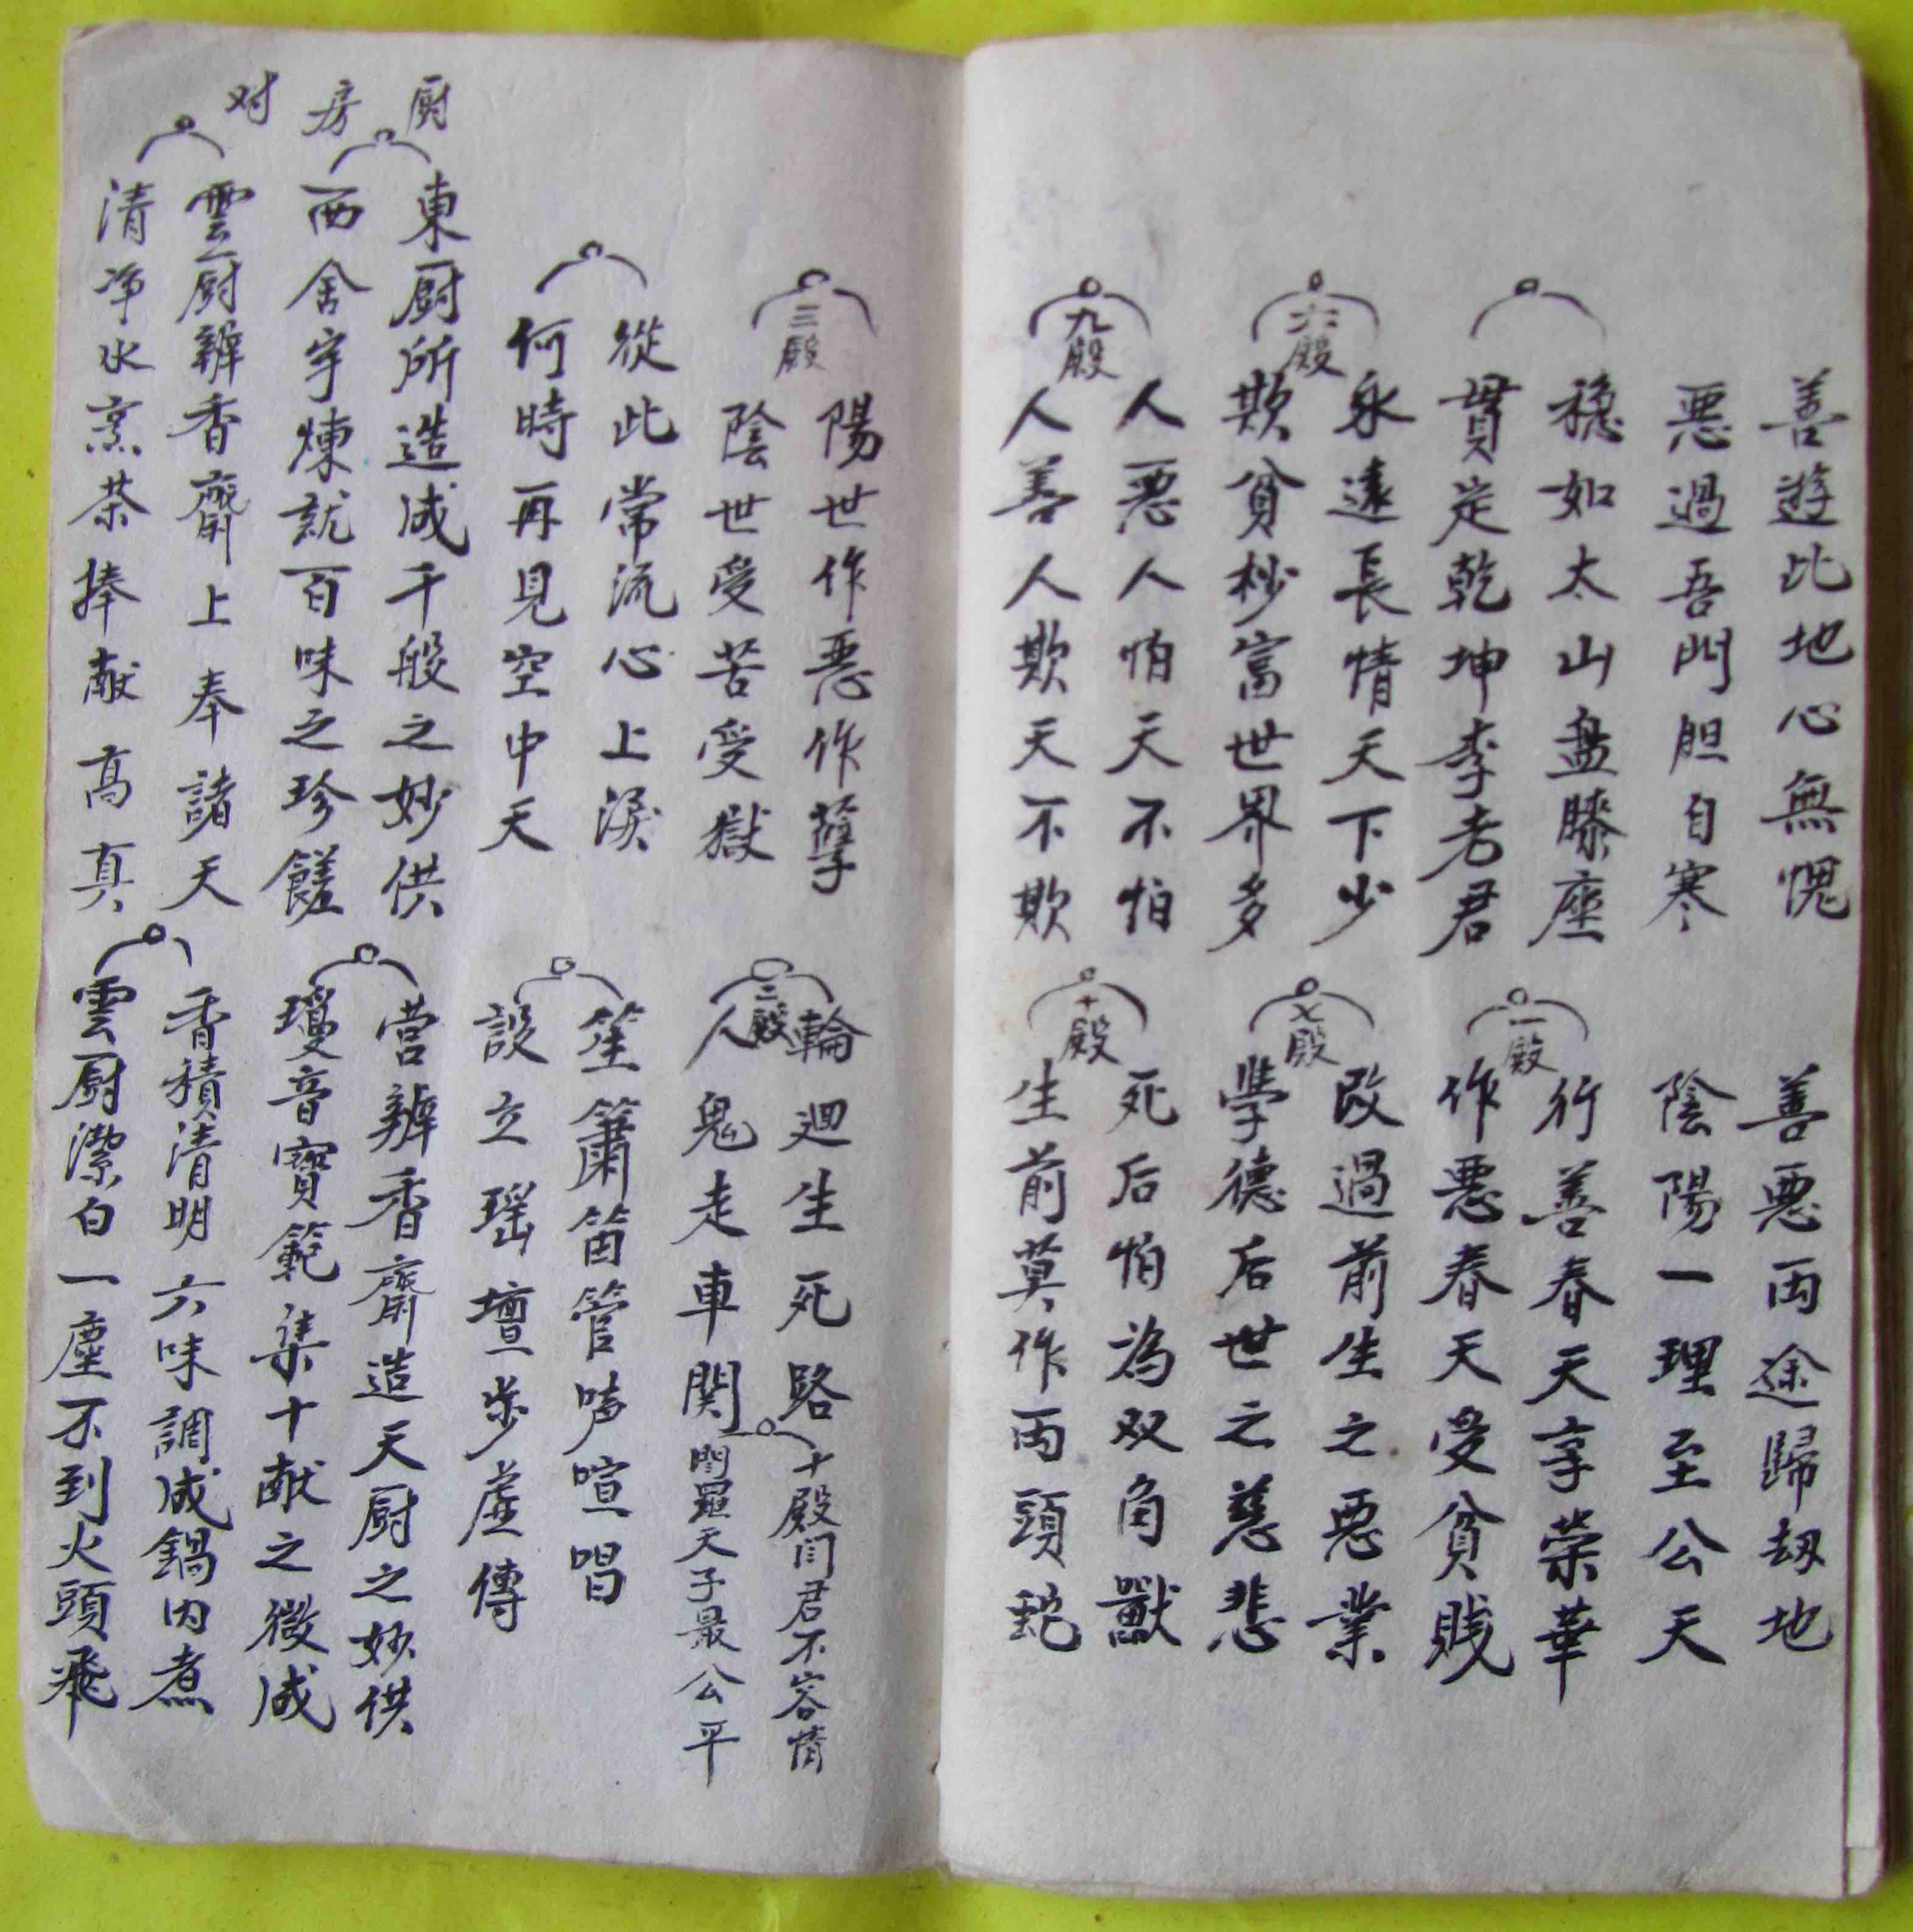 善遊此地心無愧
惡過吾門胆自寒
穩如太山盘膝座
貫定乾坤李老君
六殿
永遠長情天下少
欺貧杪富世界多
九殿
人惡人怕天不怕
人善人欺天不欺
善惡両途歸刼地
陰陽一理至公天
一殿
行善春天享荣華
作惡春天受貧賎
七殿
改過前生之惡業
學德后世之慈悲
十殿
死后怕為双角獸
生前莫作両頭蛇
三殿
陽世作惡作孽
陰世受苦受獄
從此常流心上淚
何時再見空中天
厨房对
東厨所造成千般之妙供
西舍宇煉就百味之珍饈
雲厨辦香齋上奉諸天
清净水烹茶捧献高真
三殿
輪迴生死路
人鬼走車関
十殿闫君不容情
閻羅天子最公平
笙簫笛管声喧唱
設立瑶壇步虚傳
营辦香齋造天厨之妙供
瓊音寶範集十献之微成
香積清明六味調成鍋内煮
雲厨潔白一塵不到火頭飛